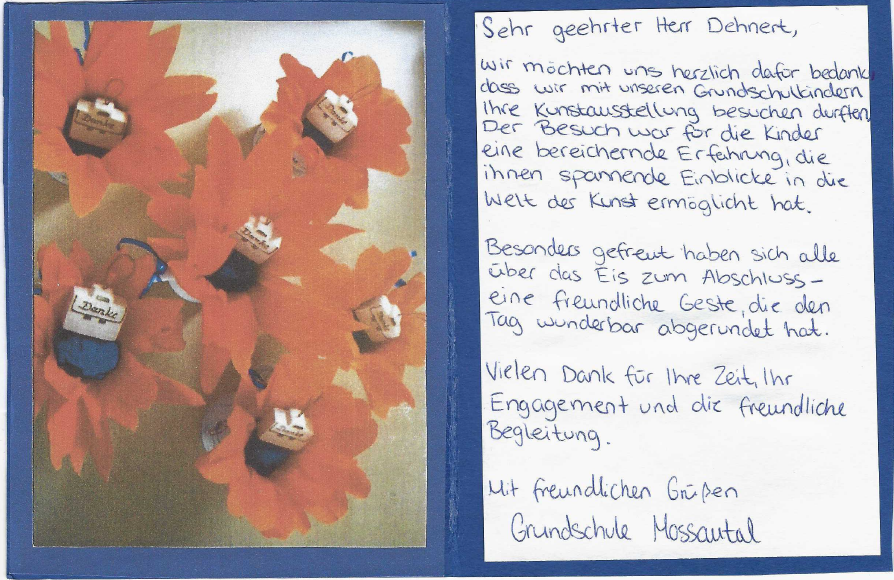 Danke
Danke
Danke
Danke
Danke
Danke
Sehr geehrter Herr Dehnert,
wir möchten uns herzlich dafür bedank
dass wir mit unseren Grundschulkindern
Ihre Kunstausstellung besuchen durften
Der Besuch war für die Kinder
eine bereichernde Erfahrung, die
ihnen spannende Einblicke in die
Welt der Kunst ermöglicht hat.
Besonders gefreut haben sich alle
über das Eis zum Abschluss –
eine freundliche Geste, die den
Tag wunderbar abgerundet hat.
Vielen Dank für Ihre Zeit, Ihr
Engagement und die freundliche
Begleitung.
Mit freundlichen Grüßen
Grundschule Mossautal